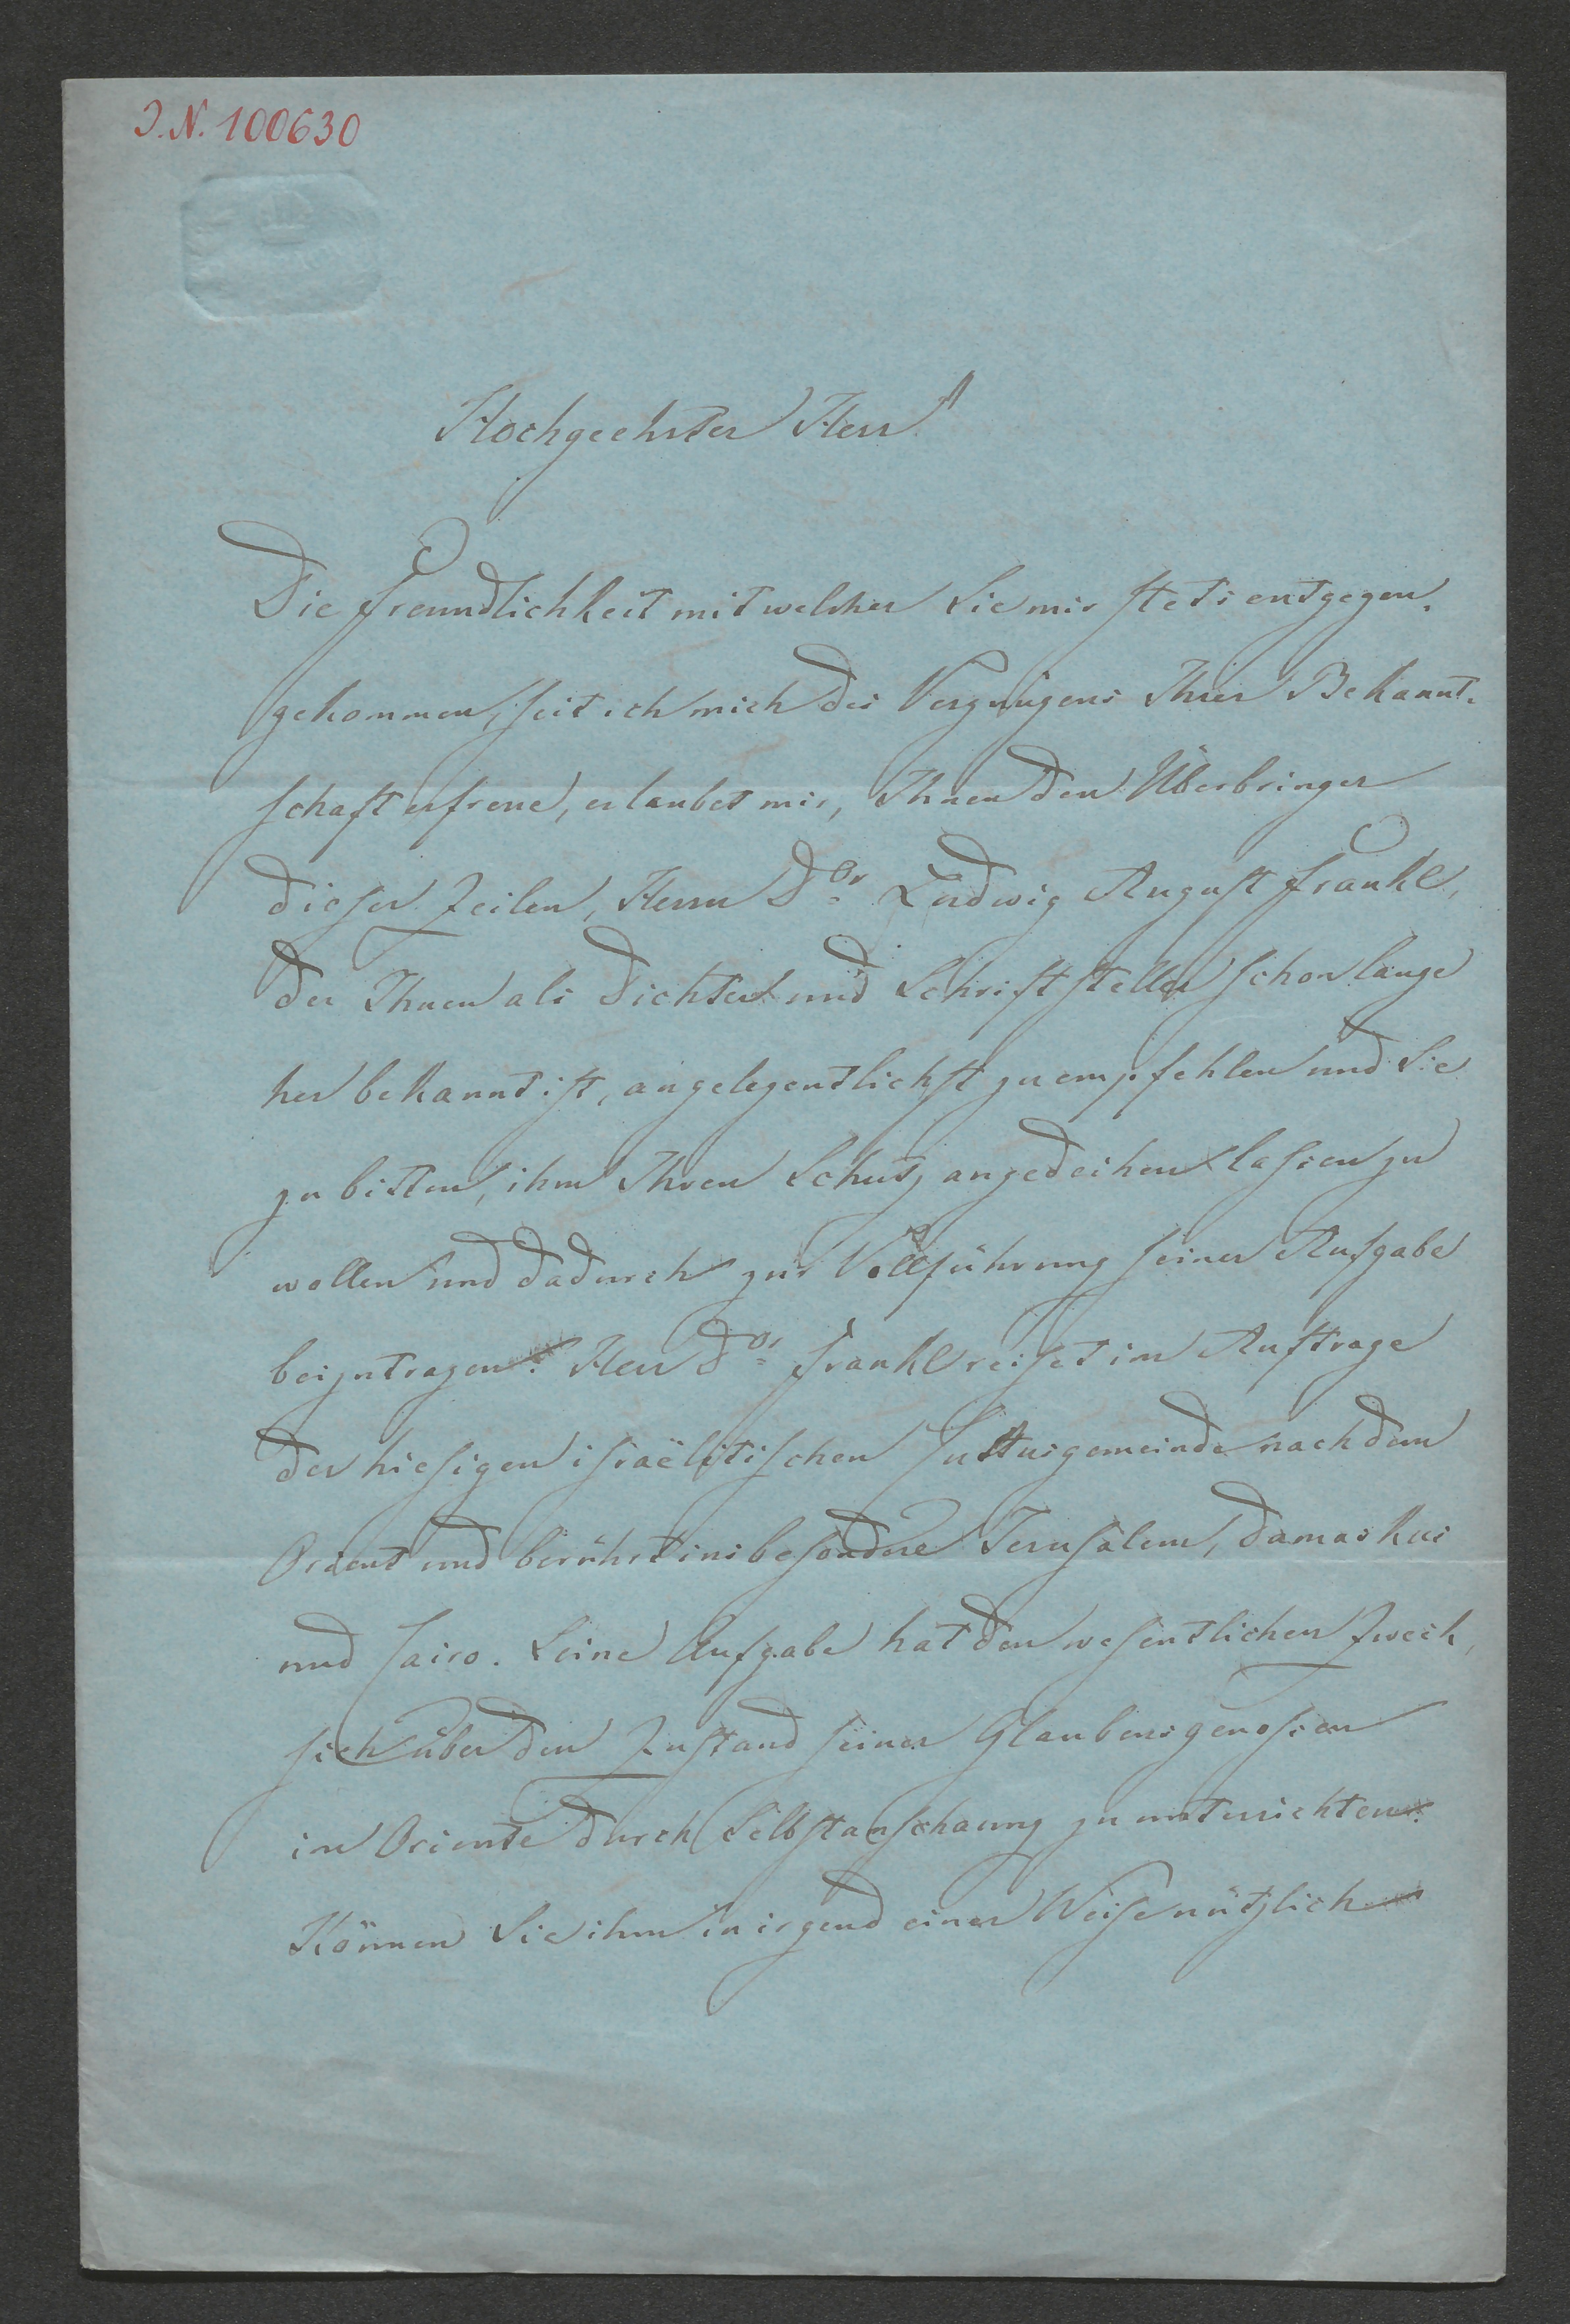 J.N. 100630
Hochgeehrter Herr!
Die Freundlichkeit mit welcher Sie mir stets entgegen-
gekommen, seit ich mich des Vergnügens Ihrer Bekannt-
schaft erfreue, erlaubet mir, Ihnen den Überbringer
dieser Zeilen, Herrn Dor Ludwig August Frankl,
der Ihnen als Dichter und Schriftsteller schon lange
her bekannt ist, angelegentlichst zu empfehlen und Sie
zu bitten, ihm Ihren Schutz angedeihen lassen zu
wollen und dadurch zur Vollführung seiner Aufgabe
beizutragen. Herr Dor Frankl reiset im Auftrage
der hiesigen israëlitischen Cultusgemeinde nach dem
Orient und berührt insbesondere Jerusalem, Damaskus
und Cairo. Seine Aufgabe hat den wesentlichen Zweck,
sich über den Zustand seiner Glaubensgenossen
im Oriente durch Selbstanschauung zu unterrichten.
Können Sie ihm in irgend einer Weise nützlich